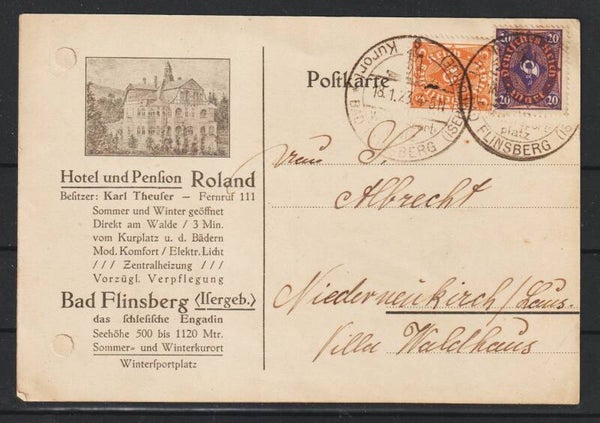 Hotel und Pension Roland
Besitzer: Karl Theuser — Fernruf 111
Sommer und Winter geöffnet
Direkt am Walde / 3 Min.
vom Kurplatz u. d. Bädern
Mod. Komfort / Elektr. Licht
/ / / Zentralheizung / / /
Vorzügl. Verpflegung
Bad Flinsberg (Isergeb.)
das schlesische Engadin
Seehöhe 500 bis 1120 Mtr.
Sommer- und Winterkurort
Wintersportplatz
Postkarte
Kurort
18.1.23
BERG (ISER
5
5
Deutsches Reich
20
20
platz
FLINSBERG
Albrecht
Niederneukirch/Laus.
Villa Waldhaus